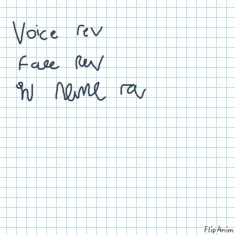 Voice rev
Face rev
name
FlipAnim